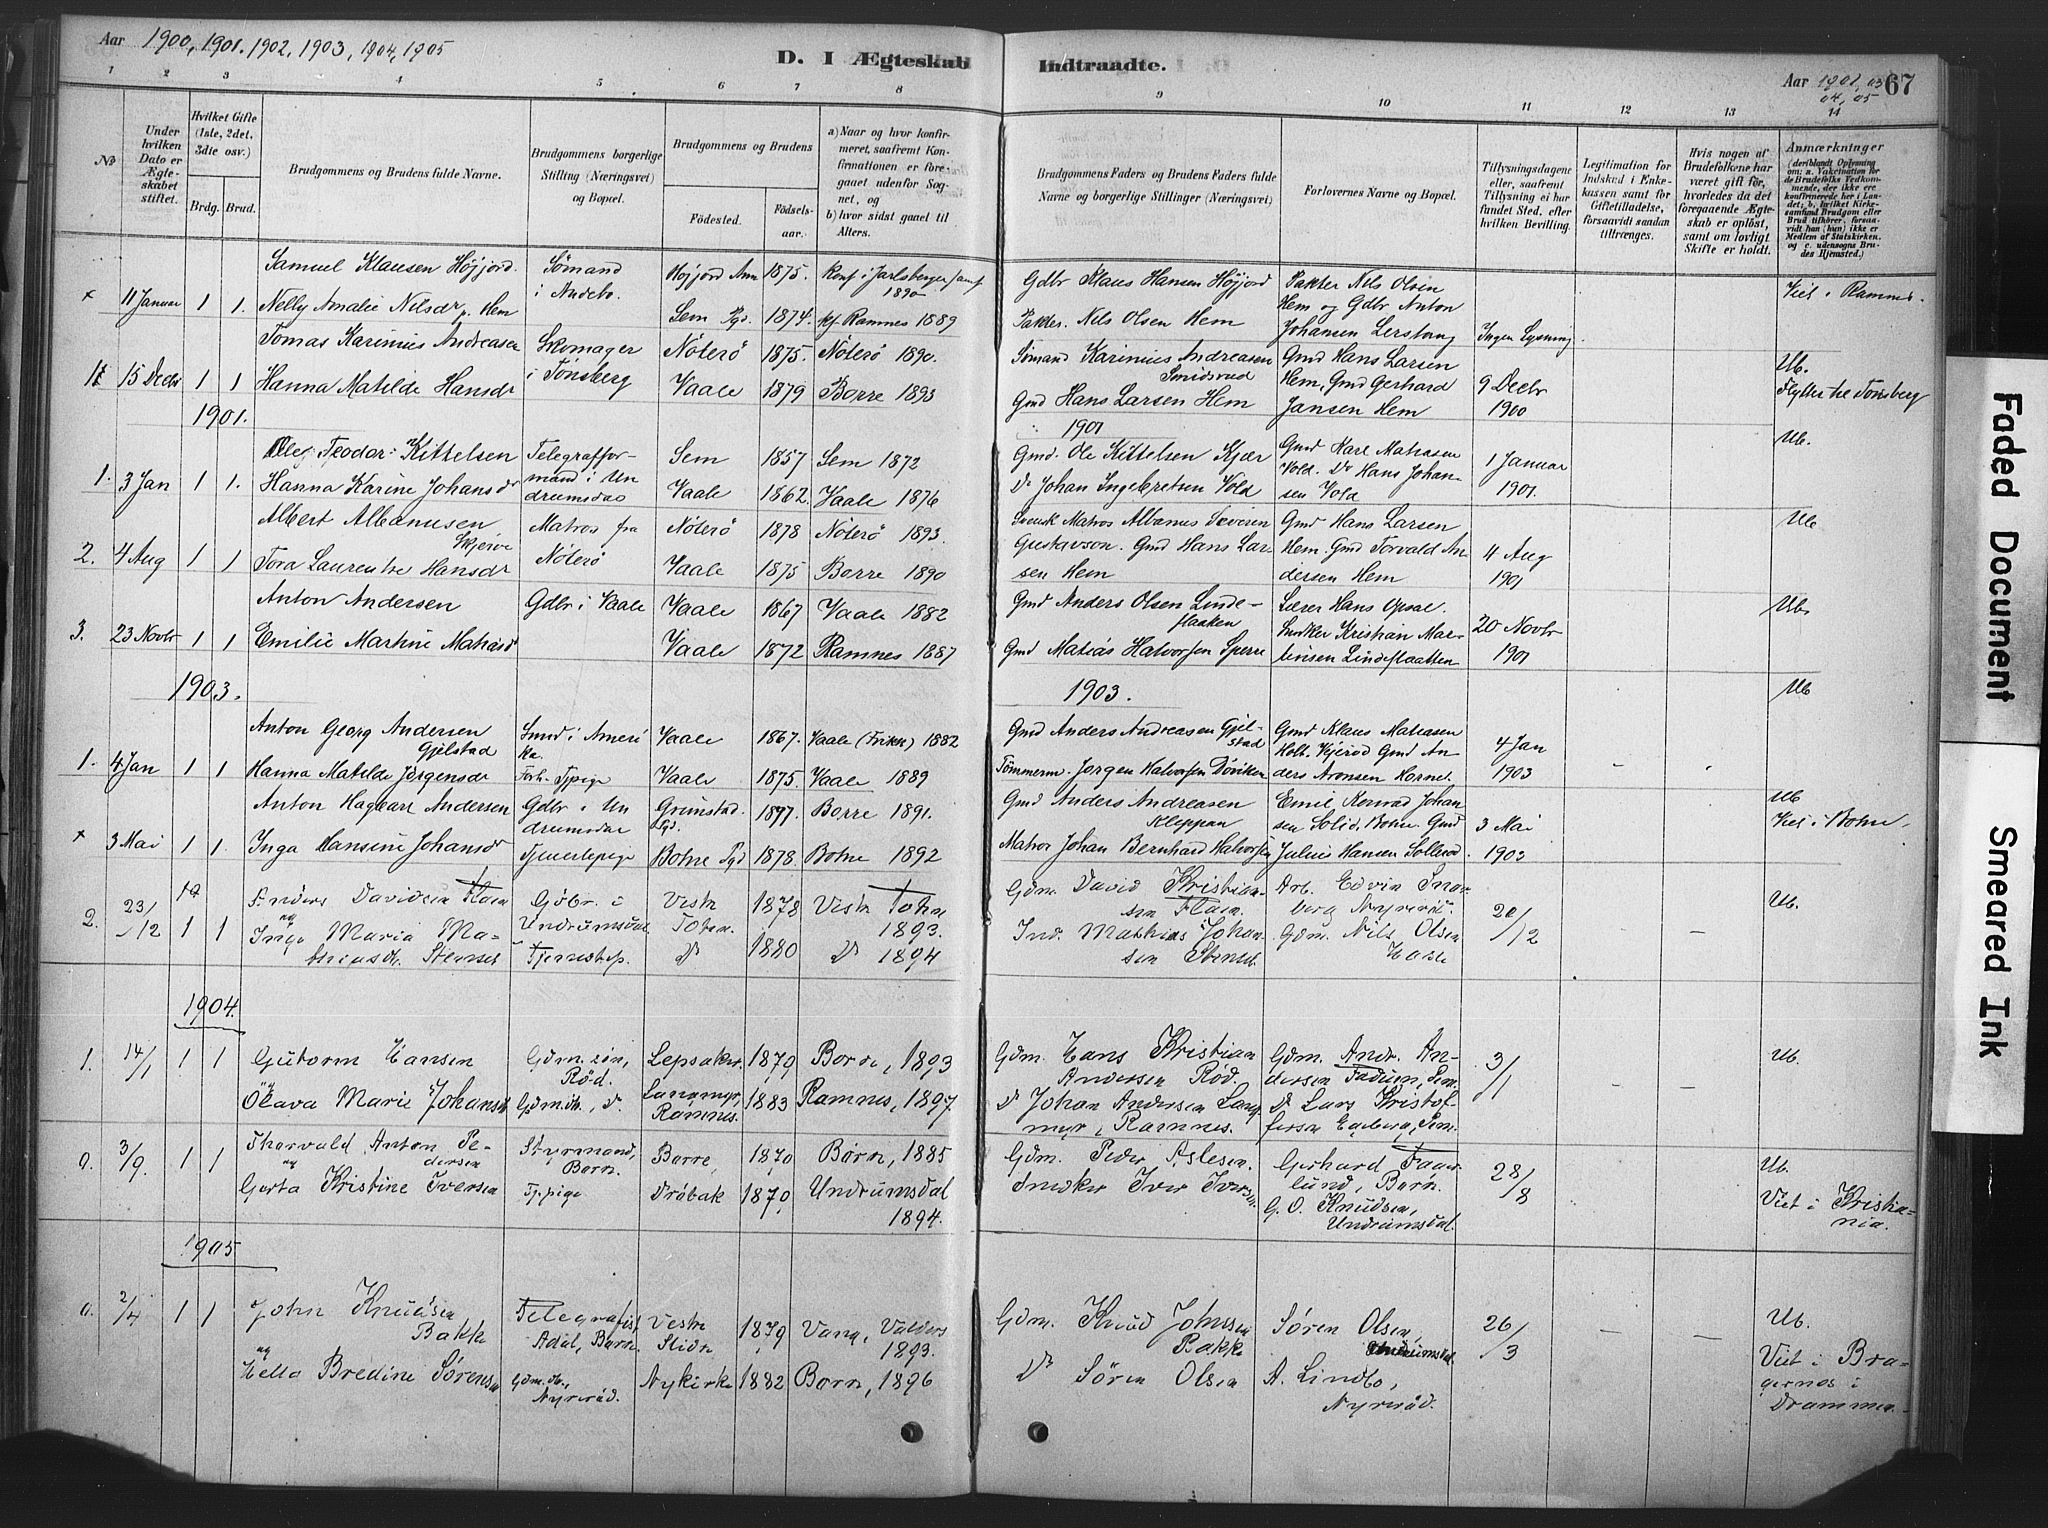 Aar 1900, 1901. 1902, 1903, 1904, 1905
D. I Ægteskab Indtraadte.
Aar 1901, 03 04, 05
67
1 2 3 4 5 6 7 8 9 10 11 12 13 14
No
Under hvilken Dato er Ægteskabet stiftet.
Hvilket Gifte (1ste, 2det, 3die osv.)
Brdg. Brud.
Brudgommens og Brudens fulde Navne.
Brudgommens borgerlige Stilling (Næringsvei) og Bopæl.
Brudgommens og Brudens
Fødested.
Fødselsaar.
a) Naar og hvor konfirmeret, saafremt Konfirmationen er foregaaet udenfor Sognet, og
b) hvor sidst gaaet til Alters.
Brudgommens Faders og Brudens Faders fulde Navne og borgerlige Stillinger (Næringsvei)
Forlovernes Navne og Bopæl.
Tillysningsdagene eller, saafremt Tillysning ei har fundet Sted, efter hvilken Bevilling.
Legitimation for Indskud i Enkekassen samt for Giftetilladelse, forsaavidt saadan tiltrænges.
Hvis nogen af Brudefolkene har været gift før, hvorledes da det foregaaende Ægteskab er opløst, samt om lovligt Skifte er holdt.
Anmærkninger
(deriblandt Oplysning om: a. Vakcination for de Brudefolks Vedkommende, der ikke ere konfirmerede her i Landet; b. hvilket Kirkesamfund Brudgom eller Brud tilhører, forsaavidt han (hun) ikke er Medlem af Statskirken, og c. udensogns Brudes Hjemsted.)
Samuel Klausen Höjjord. Sömand Höjjord Ann 1875. Konf i Jarlsberg 1890 Gdbr Klaus Hansen Höjjord Pakter Nils Olsen
+ 11 Januar 1 1. Nelly Amalie Nilsdr, Hem i Andebo. Sem Pgd. 1874. kf Ramnes 1889 Pakter. Nils Olsen Hem Hem og Gdbr Anton Johansen Ingen Lysning. Viet i Ramnes.
Tomas Karinius Andreasen Skomager Nöterö 1875. Nöterö 1890. Sömand Karinius Andreasen Smidsrud Gmd Hans Larsen Ub.
11 15 Decbr 1 1 Hanna Matilde Hansdr i Tönsberg Vaale 1879 Borre 1893 Gmd Hans Larsen Hem Hem, Gmd Gerhard Jansen Hem 9 Decbr 1900 Flytter til Tønsberg
1901.
1901
Teodor Kittelsen Telegrafformand i Undrumsdal Sem 1857 Sem 1872 Gmd. Ole Kittelsen Kjær Gmd Karl Matiasen Ub.
1. 3 Jan 1 1. Hanna Karine Johansdr Vaale 1862. Vaale 1876 Do Johan Ingebretsen Vold Vold. Do Hans Johansen Vold 1 Januar 1901.
Albert Albanusen Skjerve Matros fra Nöterö Nöterö 1878 Nöterö 1893. Svensk Matros Albanus Severin Gustavson. Gmd Hans Larsen Ub
2. 4 Aug 1 1 Tora Laurentze Hansdr Vaale 1875 Borre 1890 Gmd Hans Larsen Hem Hem. Gmd Torvald Andersen Hem 4 Aug 1901
Anton Andersen Gdbr i Vaale Vaale 1867 Vaale 1882 Gmd Anders Olsen Lindeflaaten Lærer Hans Opsal. Ub.
3. 23 Novbr 1 1 Emilie Martine Matiasd Vaale 1872 Ramnes 1887 Gmd Matias Halvorsen Sperre Snedker Kristian Martinsen Lindeflaatten 20 Novbr 1901
1903.
1903.
Ub
Anton Georg Andersen Gjelstad Smed i Amerika Vaale 1867. Vaale (Frikk) 1882 Gmd Anders Andreasen Gjelstad Gmd Klaus Matiasen
1. 4 Jan 1 1 Hanna Matilde Jörgensdr Forh. Tjpige Vaale 1875 Vaale 1889 Tömmerm. Jörgen Halvorsen Döviken Gmd Anders Aronsen 4 Jan 1903 - -
Anton Hagbart Andersen Gdbr i Undrumsdal Grimstad Pgd. 1877. Borre 1891. Gmd Anders Andreasen Kleppan Emil Konrad Johansen Solid, Botne. Gmd Ub
+ 3 Mai 1 1. Inga Hansine Johansdr Tjenestepige Botne Pgd 1878. Botne 1892 Matros Johan Bernhard Halvorsen Julius Hansen Sollerød. 3 Mai 1903 Viet i Botne.
Anders Davidsen Flaen Gdbr. i Undrumsdal Vestr Toten. 1878 Vestr Toten 1893. Gdm. David Kristiansen Flaen. Arb. Edvin Snarberg Nyreröd. Ub.
2. 23/12 1 1 og Inga Maria Mathiasdr. Stenset Tjenestep. Do 1880 Do 1894 Ind. Mathias Johansen Stenset Gdm. Nils Olsen 20/12 - -
1904.
1. 14/1 1 1 Gutorm Hansen Gdm. sön, Röd. Lepsaker 1879, Borre, 1893 Gdm. Hans Kristian Andersen Röd. Gdm. Andr. Andersen, Sem. 3/1 - - Ub.
og Olava Marie Johansdr Gdm.dtr., Do. Langmyr, Ramnes. 1883 Ramnes, 1897. Do Johan Andersen Langmyr, Ramnes. Do Lars Kristoffersen, Sem.
0. 3/9. 1 1 Thorvald Anton Pedersen Styrmand, Borre. Borre, 1870 Borre, 1885 Gdm. Peder Aslesen. Gerhard, Borre. 28/8 - - Ub.
og Gerta Kristine Iversen Tjpige Dröbak 1870, Undrumsdal 1894. Snedker Iver Iversen. G. O. Knudsen, Undrumsdal. Viet i Kristiania.
1905
0. 2/4 1 1 John Knudsen Bakke Telegrafist, Adal, Borre Vestr Slidre 1879, Vang, Valders 1893. Gdm. Knud Johnsen Bakke Sören Olsen, Undrumsdal. 26/3 - - Ub.
og Helle Bredine Sörensen Gdm.dtr., Nyreröd. Nykirke 1882 Borre, 1896 Do Sören Olsen A. Lindbo, Nyreröd. Viet i Bragernes i Drammen.
Faded Document
Smeared Ink